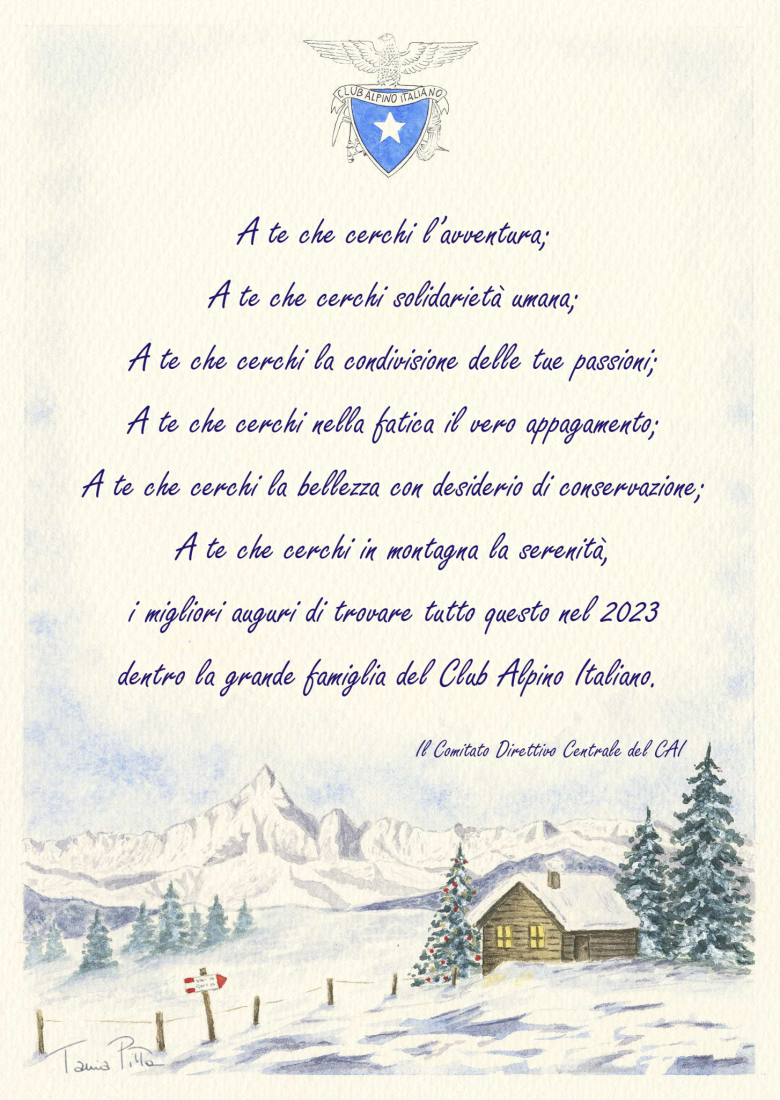 CLUB ALPINO ITALIANO
A te che cerchi l'avventura;
A te che cerchi solidarietà umana;
A te che cerchi la condivisione delle tue passioni;
A te che cerchi nella fatica il vero appagamento;
A te che cerchi la bellezza con desiderio di conservazione;
A te che cerchi in montagna la serenità,
i migliori auguri di trovare tutto questo nel 2023
dentro la grande famiglia del Club Alpino Italiano.
Il Comitato Direttivo Centrale del CAI
Tania